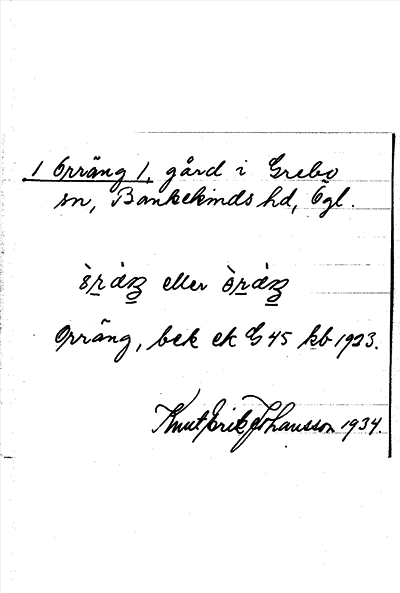 1 Orräng 1, gård i Grebo
sn, Bankekinds hd, Ögl.
eller
Orräng, bek ek G 45 kb 1923.
Knut Erik Johansson 1934.